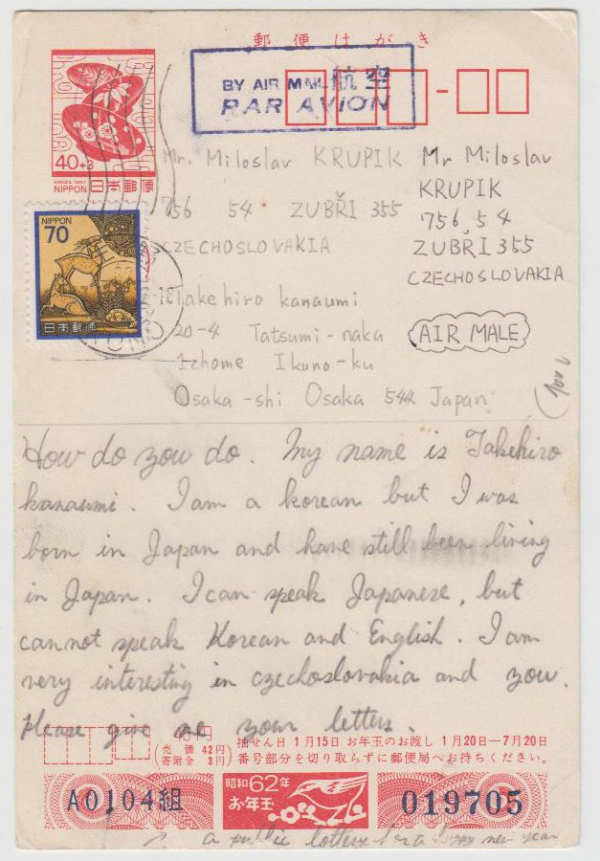 郵便はがき
BY AIR MAIL 航空
PAR AVION
40+3
NIPPON 日本郵便
NIPPON
70
日本郵便
Mr. Miloslav KRUPIK
756 54 ZUBŘI 355
CZECHOSLOVAKIA
Mr Miloslav
KRUPIK
756,54
ZUBŘI 355
CZECHOSLOVAKIA
AIR MALE
Takehiro kanaumi
20-4 Tatsumi-naka
1chome Ikuno-ku
Osaka-shi Osaka 544 Japan
How do you do. My name is Takehiro
kanaumi. I am a korean but I was
born in Japan and have still been living
in Japan. I can speak Japanese, but
cannot speak Korean and English. I am
very interesting in czechoslovakia and you.
Please give me your letters.
40円
(売価 42円
寄附金 3円)
抽せん日 1月15日 お年玉のお渡し 1月20日—7月20日
番号部分を切り取らずに郵便局へお持ちください。
A0104組
昭和62年
お年玉
019705
a public lottery for a happy new year